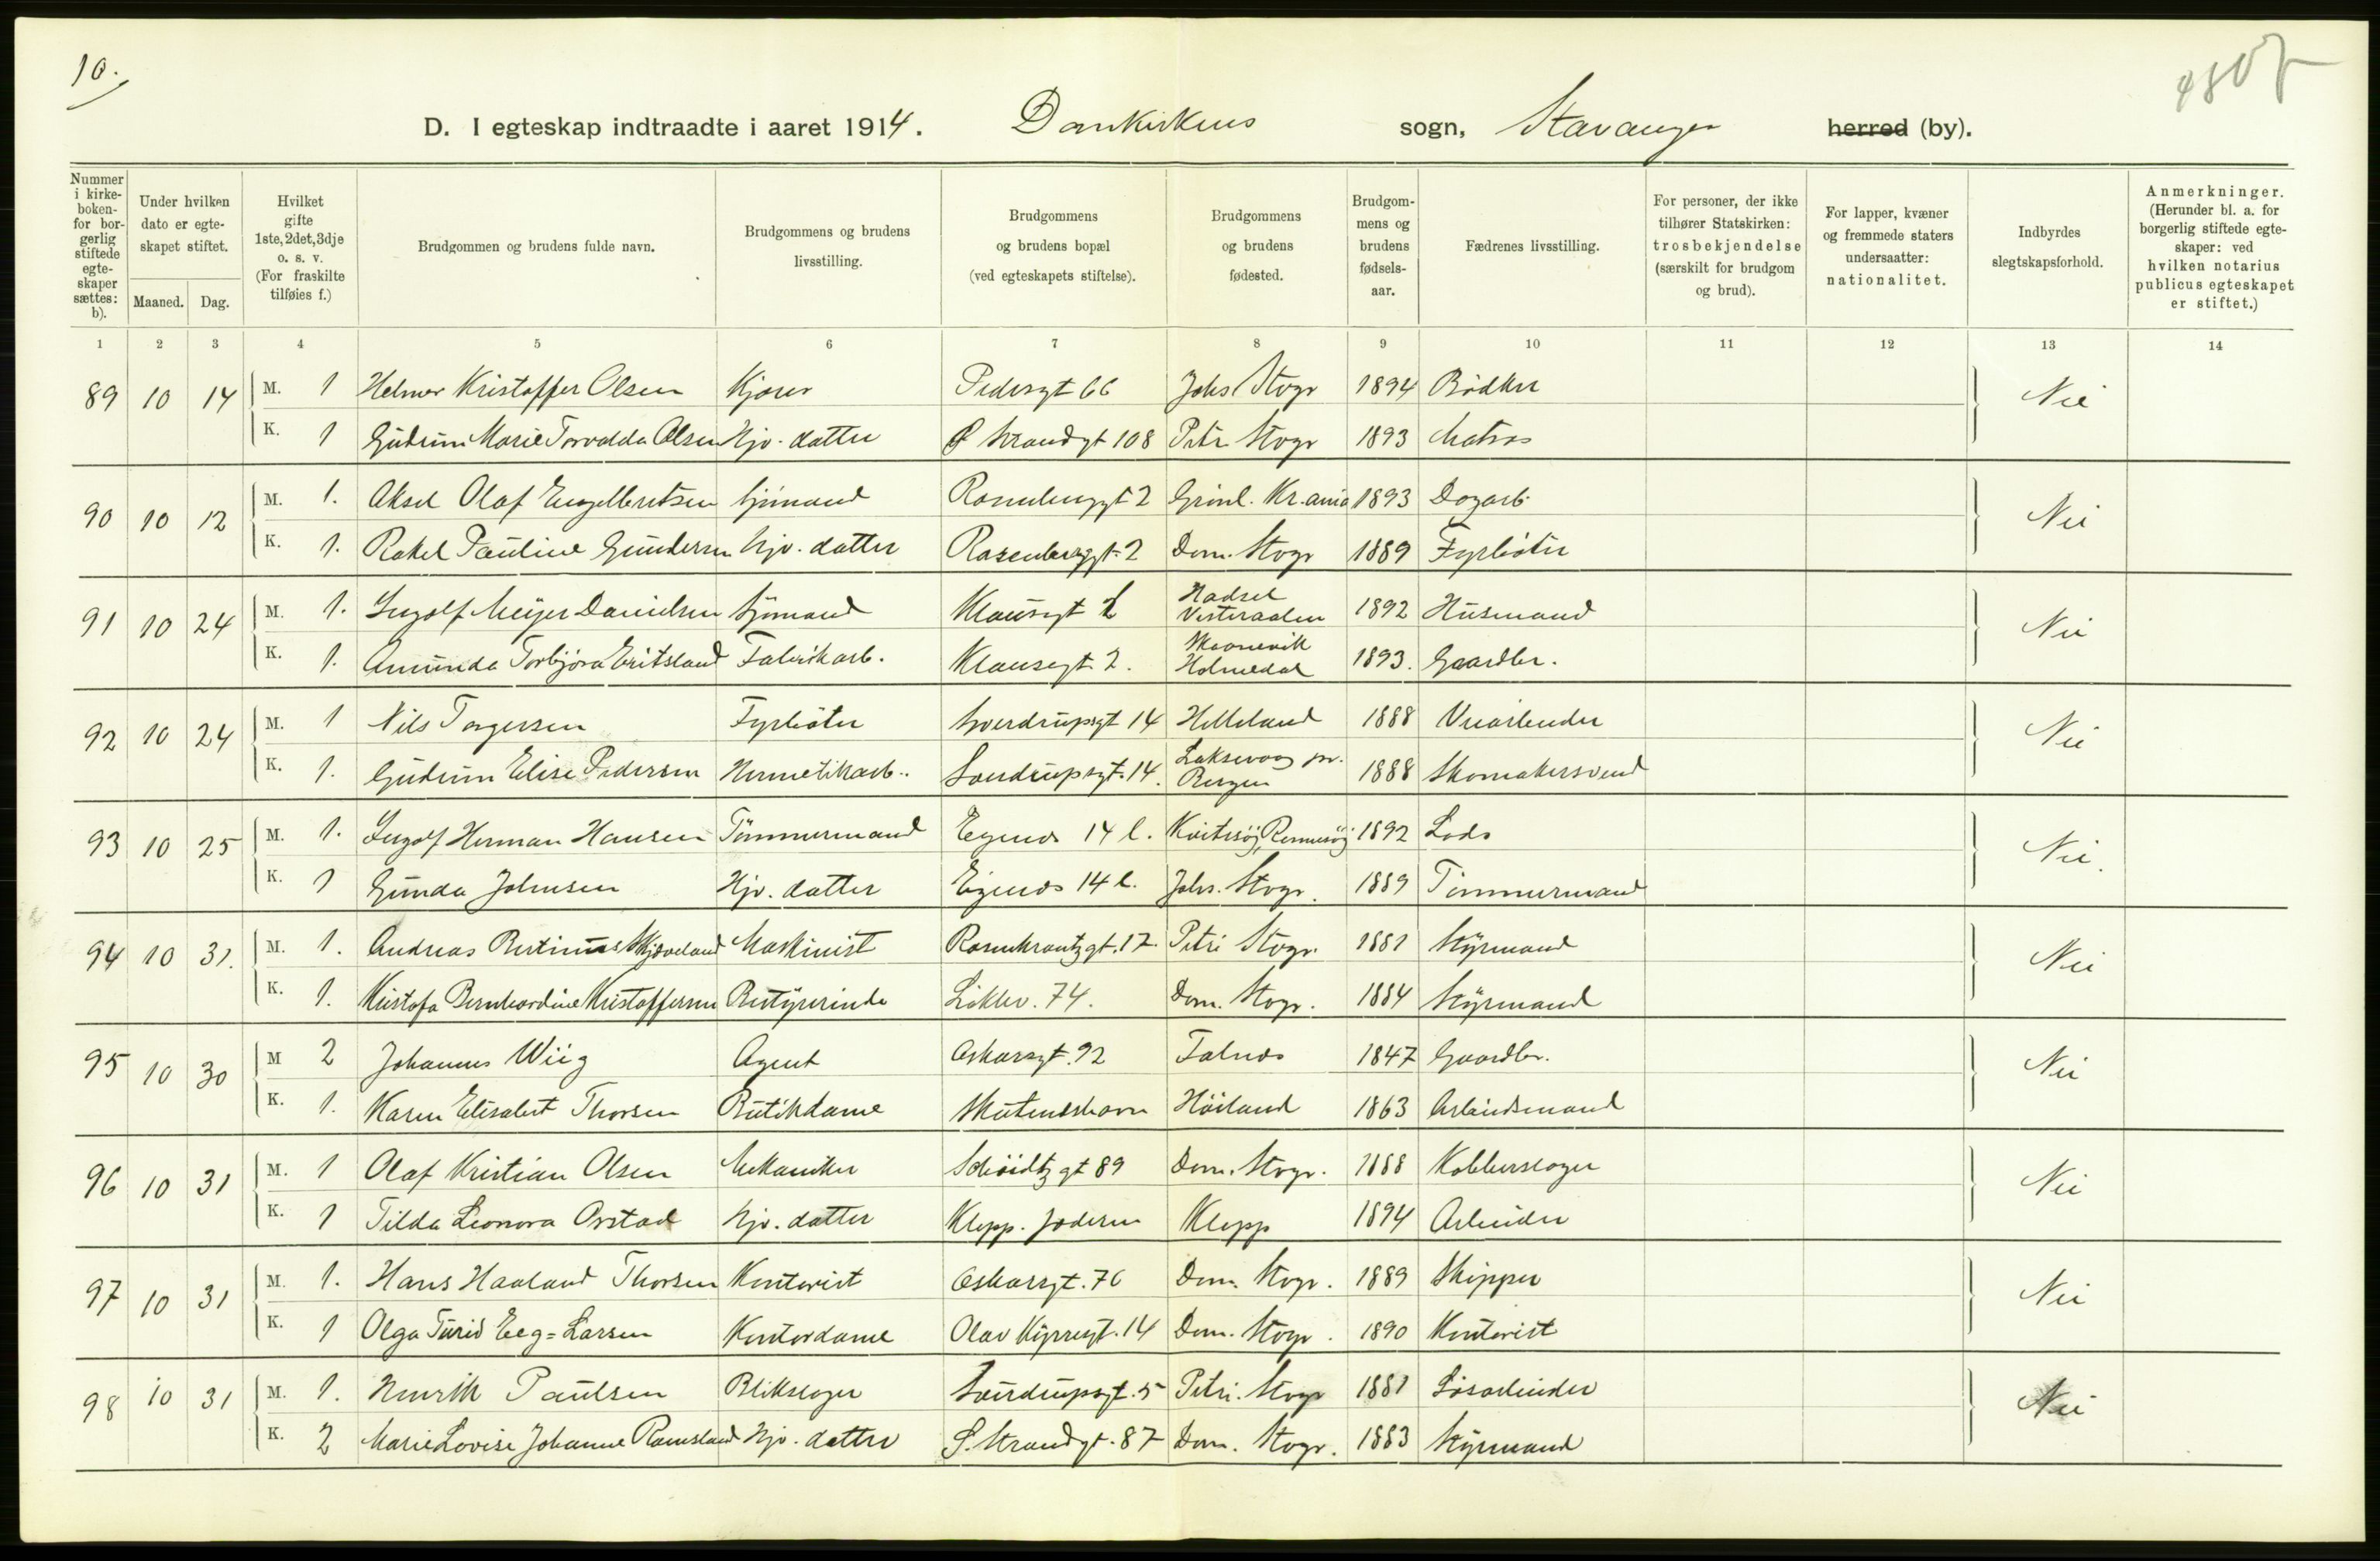 10.
D. I egteskap indtraadte i aaret 1914. Domkirkens sogn, Stavanger herred (by).
Nummer i kirke-boken- for bor-gerlig stiftede egte-skaper sættes: b). | Under hvilken dato er egte-skapet stiftet. Maaned. Dag. | Hvilket gifte 1ste, 2det, 3dje o. s. v. (For fraskilte tilføies f.) | Brudgommen og brudens fulde navn. | Brudgommens og brudens livsstilling. | Brudgommens og brudens bopæl (ved egteskapets stiftelse). | Brudgommens og brudens fødested. | Brudgom-mens og brudens fødsels-aar. | Fædrenes livsstilling. | For personer, der ikke tilhører Statskirken: trosbekjendelse (særskilt for brudgom og brud). | For lapper, kvæner og fremmede staters undersaatter: nationalitet. | Indbyrdes slegtskapsforhold. | Anmerkninger. (Herunder bl. a. for borgerlig stiftede egte-skaper: ved hvilken notarius publicus egteskapet er stiftet.)
1 2 3 4 5 6 7 8 9 10 11 12 13 14
89 10 14 M. 1 Helmer Kristoffer Olsen Kjører Pedersgt 66 Johs Stvgr 1894 Bødker Nei
K. 1 Gudrun Marie Torvalda Olsen Hjv. datter Ø Strandgt 108 Petri Stvgr 1893 Matros
90 10 12 M. 1. Aksel Olaf Engelbretsen Sjømand Rosenberggt 2 Grønl. Kr.ania 1893 Dagarb. Nei
K. 1. Rakel Pauline Gundersen Hjv. datter Rosenberggt. 2 Dom. Stvgr 1889 Fyrbøter
91 10 24 M. 1. Ingolf Meyer Danielsen Sjømand Klausegt 2 Hadsel Vesteraalen 1892 Husmand Nei
K. 1. Amunda Torbjøra Eritsland Fabrikarb. Klausegt. 2. Skaanevik Holmedal 1893. Gaardbr.
92 10 24 M. 1 Nils Torgersen Fyrbøter Sverdrupsgt 14 Helleland 1888 Veiarbeider Nei
K. 1. Gudrun Elise Pedersen Hermetikarb.. Sverdrupsgt. 14. Laksevaag pr. Bergen 1888 Skomakersvend
93 10 25 M. 1. Ingolf Herman Hansen Tømmermand Eigenes 14 l. Kvitsøy, Rennesøy 1892 Lods Nei.
K. 1 Gunda Johnsen Hjv. datter Eigenes 14 l. Johs. Stvgr. 1889 Tømmermand
94 10 31. M. 1. Andreas Bertinius Skjæveland Maskinist Rosenkrantzgt. 17. Petri Stvgr. 1881 Styrmand Nei
K. 1. Kristofa Bernhardine Kristoffersen Bestyrerinde Løkkev. 74. Dom. Stvgr. 1884 Styrmand
95 10 30 M 2 Johannes Wiig Agent Oskarsgt. 92 Falnes 1847 Gaardbr. Nei
K. 1. Karen Elisabet Thorsen Butikdame Skudeneshavn Høiland 1863 Arbeidsmand
96 10 31 M. 1 Olaf Kristian Olsen Mekaniker Schöidtz gt 89 Dom. Stvgr. 1888 Kobberslager Nei
K. 1 Tilda Leonora Orstad Hjv. datter Klepp. Jæderen Klepp 1894 Arbeider
97 10 31 M. 1. Hans Haaland Thorsen Kontorist Oskarsgt. 76 Dom. Stvgr. 1889 Skipper Nei
K. 1 Olga Turid Eeg=Larsen Kontordame Olav Kyrresgt. 14 Dom. Stvgr. 1890 Kontorist
98 10 31 M. 1. Henrik Paulsen Blikslager Sverdrupsgt. 5 Petri. Stvgr 1881 Løsarbeider Nei
K. 2 Marie Lovise Johanne Ramsland Hjv. datter S. Strandgt. 87 Dom. Stvgr. 1883 Styrmand